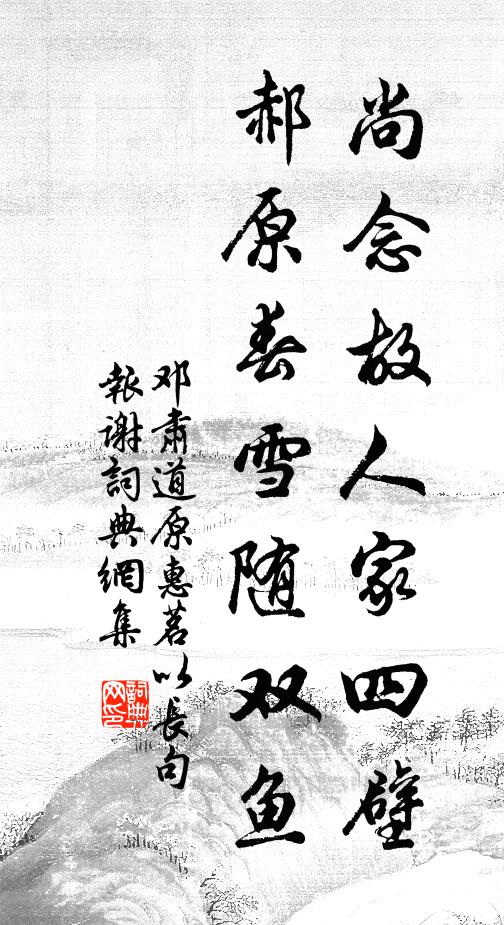 尚念故人家四壁
郝原春雪随双鱼
邓肃道原惠茗以长句
报谢词典网集
词典
网印